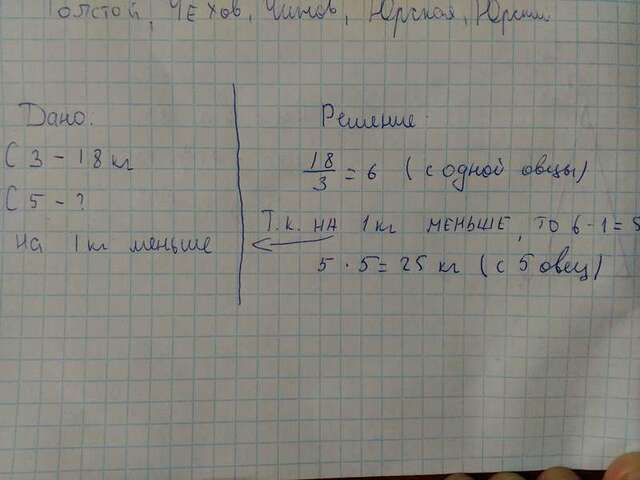 Толстой, Чехов, Чижов, Юрская, Юрский
Дано:
С 3 - 18 кг
С 5 - ?
на 1 кг меньше
Решение:
18/3 = 6 (с одной овцы)
Т.к. на 1 кг меньше, то 6 - 1 = 5
5 · 5 = 25 кг (с 5 овец)